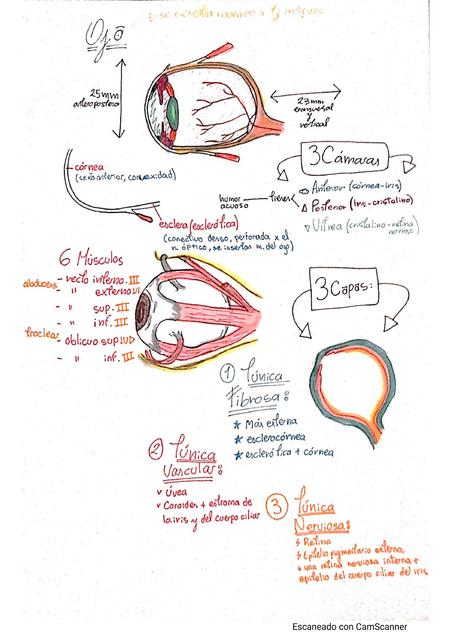 Ojo
25mm
anteroposterior
23mm
transversal
y
vertical
córnea
(sexto anterior, convexidad)
esclera (esclerótica)
(conectivo denso, perforada x el
n. óptico, se insertan m. del ojo)
3 Cámaras
humor
acuoso
tienen
Anterior (córnea-iris)
Posterior (iris-cristalino)
Vítrea (cristalino-retina
nerviosa)
6 Músculos
- recto interno. III
abducens
- " externo VI
- " sup. III
- " inf. III
troclear
- oblicuo sup IV
- " inf. III
3 Capas:
① Túnica
Fibrosa:
★ Más externa
★ esclerocórnea
★ esclerótica + córnea
② Túnica
Vascular:
v Úvea
v Coroides + estroma de
la iris y del cuerpo ciliar
③ Túnica
Nerviosa:
Retina
Epitelio pigmentario externo,
+ una retina nerviosa interna +
epitelio del cuerpo ciliar del iris
Escaneado con CamScanner